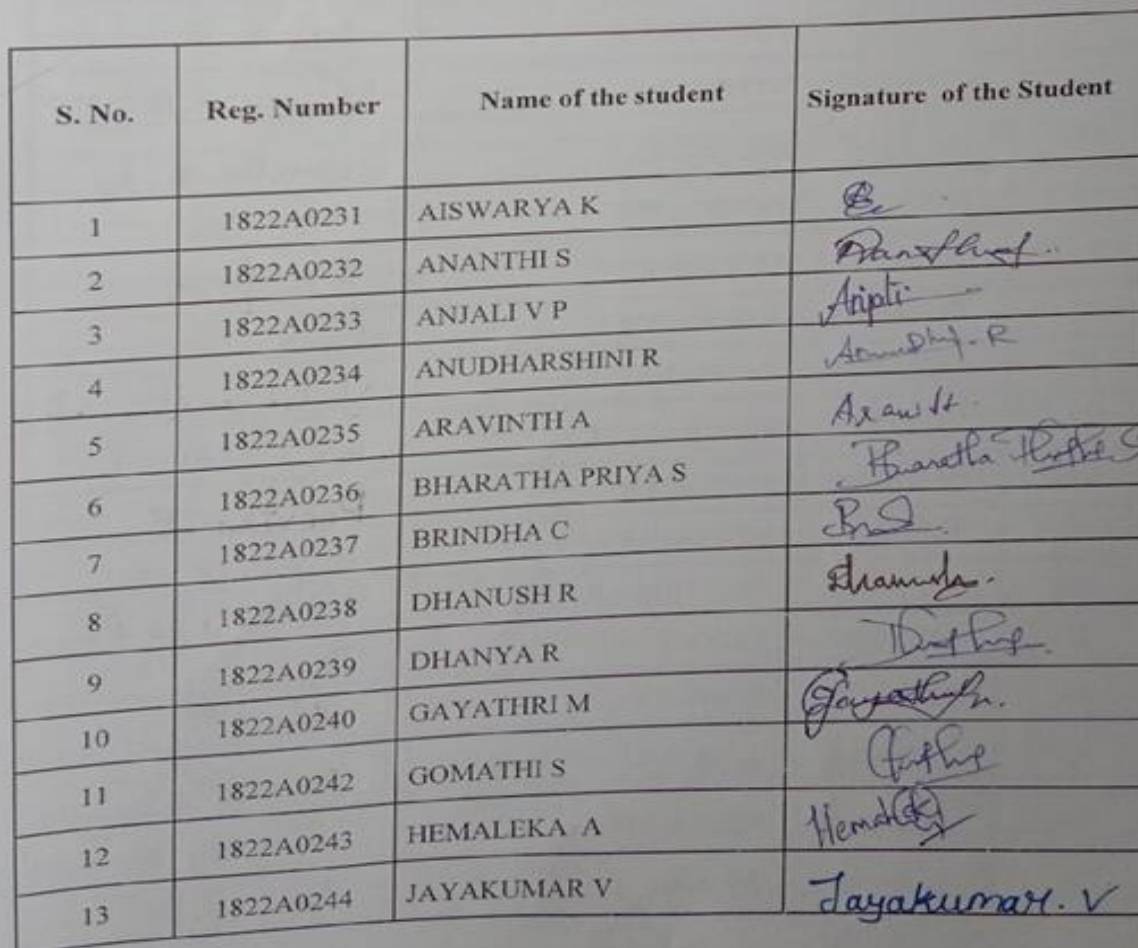 S. No. Reg. Number Name of the student Signature of the Student
1 1822A0231 AISWARYA K
2 1822A0232 ANANTHI S
3 1822A0233 ANJALI V P Anjali
4 1822A0234 ANUDHARSHINI R
5 1822A0235 ARAVINTH A
6 1822A0236 BHARATHA PRIYA S
7 1822A0237 BRINDHA C
8 1822A0238 DHANUSH R
9 1822A0239 DHANYA R
10 1822A0240 GAYATHRI M
11 1822A0242 GOMATHI S
12 1822A0243 HEMALEKA A
13 1822A0244 JAYAKUMAR V Jayakumar. V